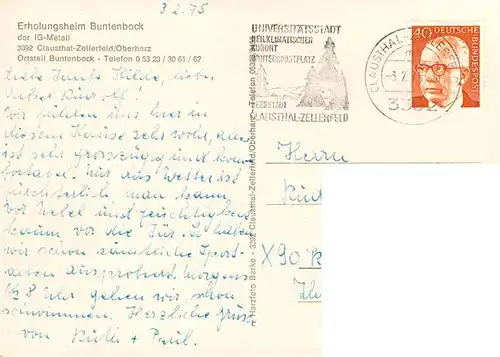 3.2.75
Erholungsheim Buntenbock
der IG-Metall
3392 Clausthal-Zellerfeld/Oberharz
Ortsteil Buntenbock - Telefon 0 53 23 / 30 61 / 62
Liebe Tante Hilde, lieber
Onkel Rudolf!
Wir fühlen uns hier in
diesem Hause sehr wohl, alles
ist sehr grosszügig und kom-
fortabel. Nur das Wetter ist
fürchterlich, man kann
vor Nebel und Feuchtigkeit
kaum vor die Tür. So haben
wir schon sämtliche Sport-
arten ausprobiert, morgens
½ 8 Uhr gehen wir schon
schwimmen. Herzliche Grüsse
von + Paul.
Harzfoto Barke - 3392 Clausthal-Zellerfeld/Oberharz - Telefon 05323
UNIVERSITÄTSSTADT
HEILKLIMATISCHER
KURORT
WINTERSPORTPLATZ
BERGSTADT
CLAUSTHAL-ZELLERFELD
CLAUSTHAL-ZELLERFELD
3392
40 DEUTSCHE
BUNDESPOST
Herrn
X90